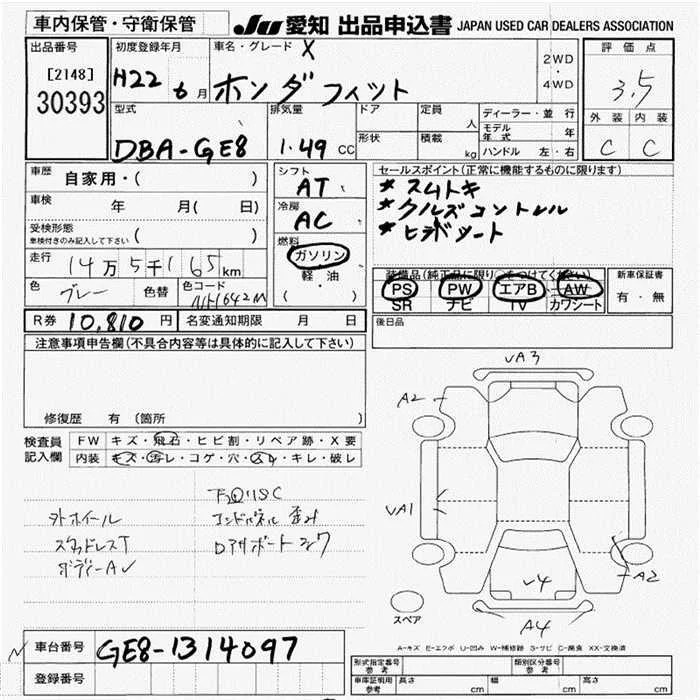 車内保管・守衛保管
JU 愛知 出品申込書 JAPAN USED CAR DEALERS ASSOCIATION
出品番号
[2148]
30393
初度登録年月
H22 6月
車名・グレード X
ホンダ フィット
2WD
・
4WD
評価点
3.5
外装 内装
C C
型式
DBA-GE8
排気量
1.49 CC
ドア
形状
定員 人
積載 kg
ディーラー・並行
モデル年式 年
ハンドル 左・右
車歴 自家用・( )
車検 年 月( 日)
受検形態
車検付きのみ記入して下さい ( )
走行 14万5千165km
色 グレー 色替 色コード NH642M
シフト
AT
冷房
AC
燃料
ガソリン
軽・油
( )
セールスポイント(正常に機能するものに限ります)
*スムトキ
*クルズコントロル
*ヒラドシート
装備品(純正品に限り○をつけてください)
PS PW エアB AW
SR ナビ TV カワシート
新車保証書
有・無
R券 10,810 円 名変通知期限 月 日
後日品
注意事項申告欄(不具合内容等は具体的に記入して下さい)
修復歴 有 (箇所 )
検査員
記入欄
FW キズ・飛石・ヒビ割・リペア跡・X要
内装 キズ・汚レ・コゲ・穴・スレ・キレ・破レ
下回リSC
外ホイール
エンドパネル 歪み
スタッドレスT
ボディーAV
VA3
A2
VA1
A2
V4
A4
スペア
A-キズ E-エクボ U-凹み W-補修跡 S-サビ C-腐食 XX-交換済
車台番号 GE8-1314097
登録番号
形式指定番号
参考
類別区分番号
参考
車庫証明用
参考
長さ cm
幅 cm
高さ cm